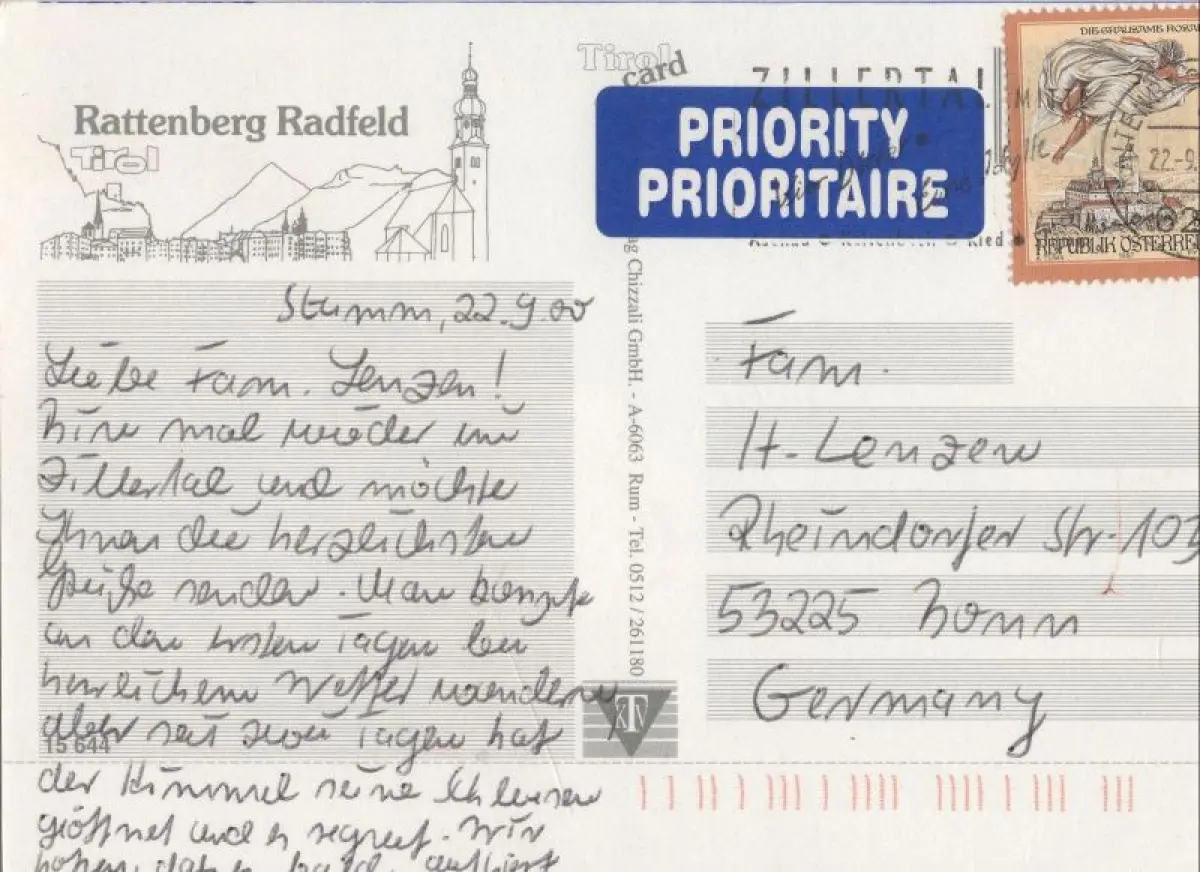 Rattenberg Radfeld
Tirol
Tirol
card
ZILLERTAL
PRIORITY
PRIORITAIRE
Ried
DIE GRAUSAME ROSA
22.-9.
REPUBLIK ÖSTERRE
Chizzali GmbH. - A-6063 Rum - Tel. 0512 / 261180
KTV
Stumm, 22.9.00
Liebe Fam. Lenzen!
Bin mal wieder im
Zillertal und möchte
Ihnen die herzlichsten
Grüße senden. Man konnte
an den ersten Tagen bei
herrlichem Wetter wandern
aber seit zwei Tagen hat
15 644
der Himmel seine Schleusen
geöffnet und es regnet. Wir
hoffen, daß es bald
Fam.
H. Lenzen
Rheindorfer Str. 103
53225 Bonn
Germany